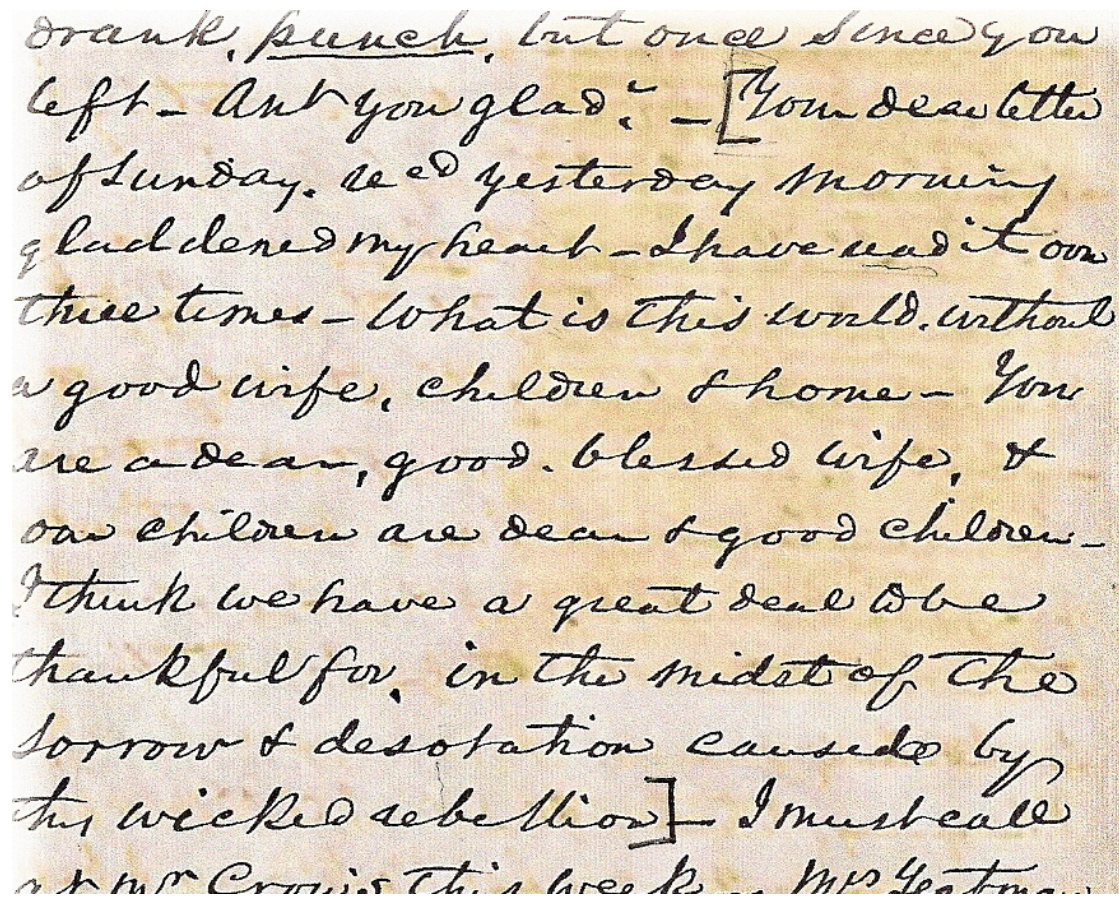 drank, punch, but once since you
left – Ant you glad? – [Your dear letter
of Sunday. recd yesterday morning
gladdened my heart – I have read it over
three times – What is this world. without
a good wife, children & home – You
are a dear, good. blessed wife, &
our children are dear & good children –
I think we have a great deal to be
thankful for, in the midst of the
sorrow & desolation caused by
this wicked rebellion] – I must call
at Mr this week Mrs Yeatman